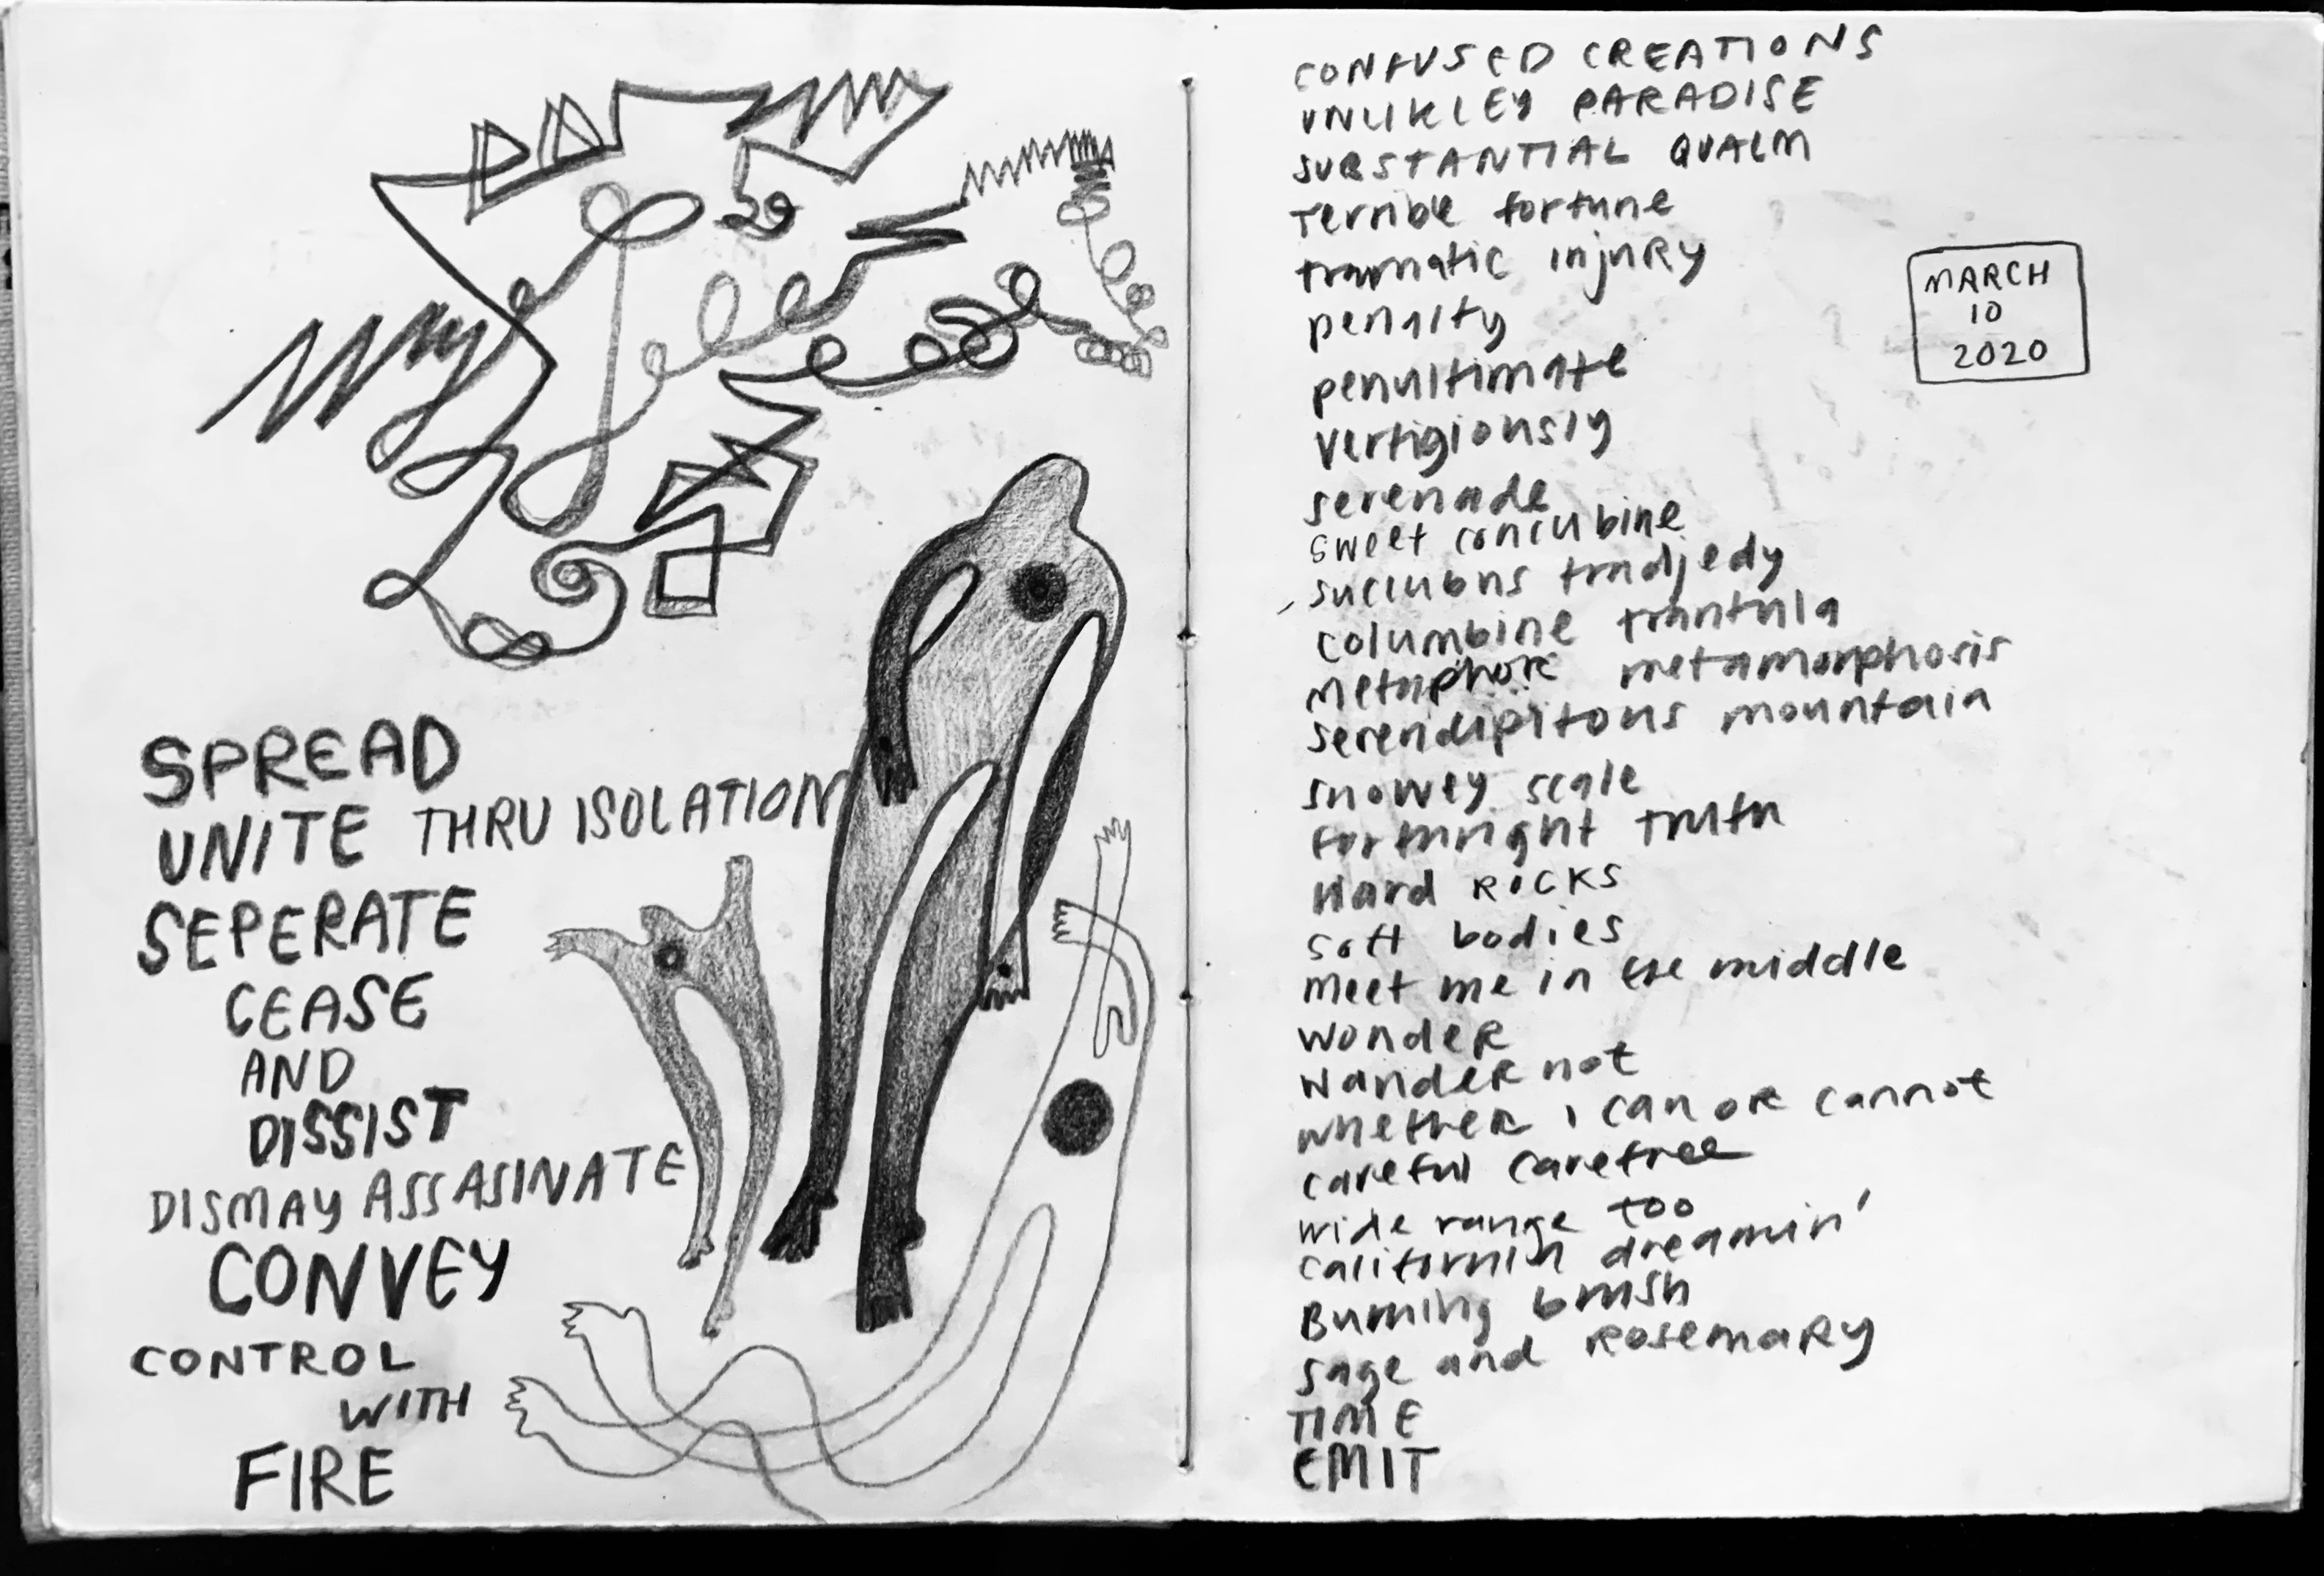 SPREAD
UNITE THRU ISOLATION
SEPERATE
CEASE
AND
DISSIST
DISMAY ASSASINATE
CONVEY
CONTROL
WITH
FIRE
CONFUSED CREATIONS
UNLIKLEY PARADISE
SUBSTANTIAL QUALM
Terrible fortune
tramatic injury
penalty
penultimate
vertigiously
serenade
sweet concubine
succubus tradjedy
columbine trantula
metaphore metamorphosis
serendipitous mountain
snowey scale
forthright truth
Hard ROCKS
soft bodies
meet me in the middle
wonder
wander not
whether i can or cannot
careful carefree
wide range too
california dreamin'
Burning brush
sage and rosemary
TIME
EMIT
MARCH
10
2020